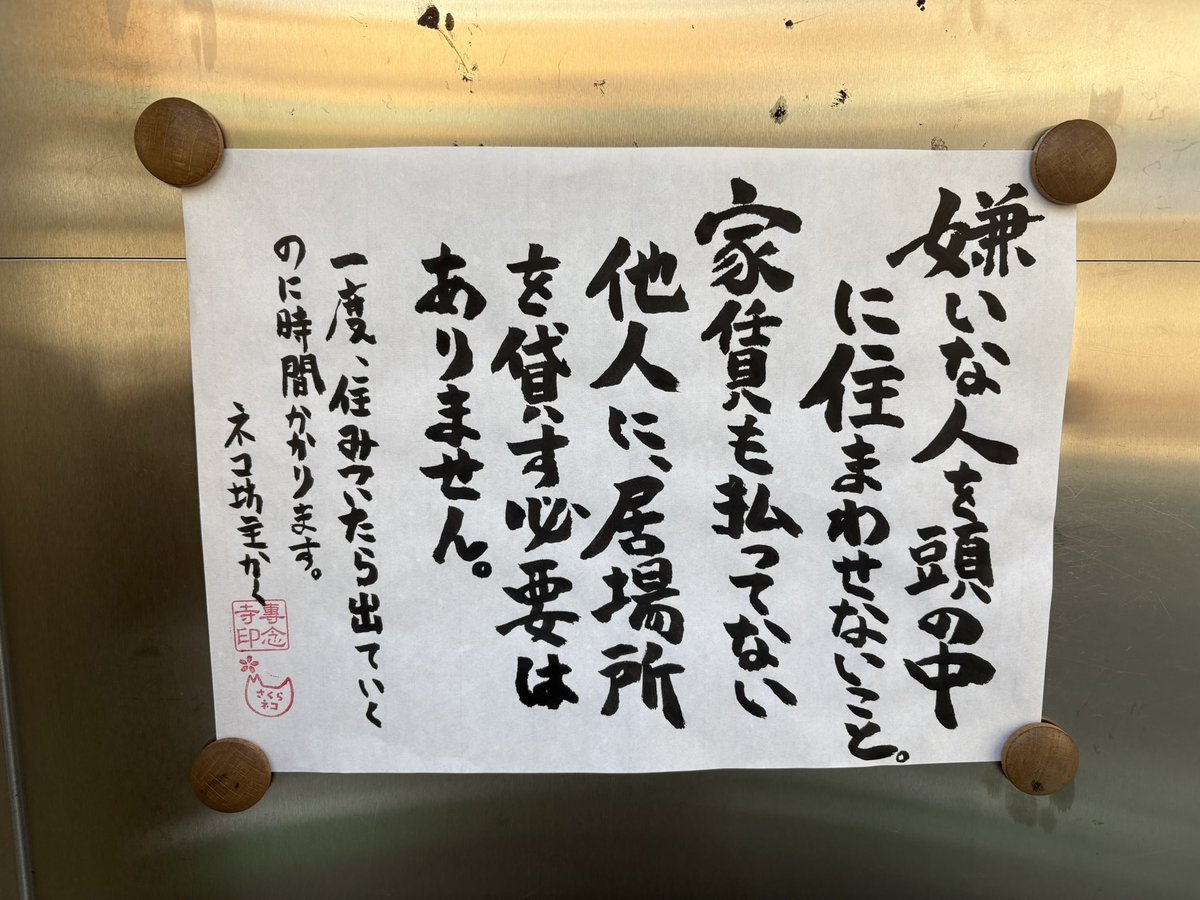 嫌いな人を頭の中
に住まわせないこと。
家賃も払ってない
他人に、居場所
を貸す必要は
ありません。
一度、住みついたら出ていく
のに時間かかります。
ネコ坊主かく
專念
寺印
さくら
ネコ